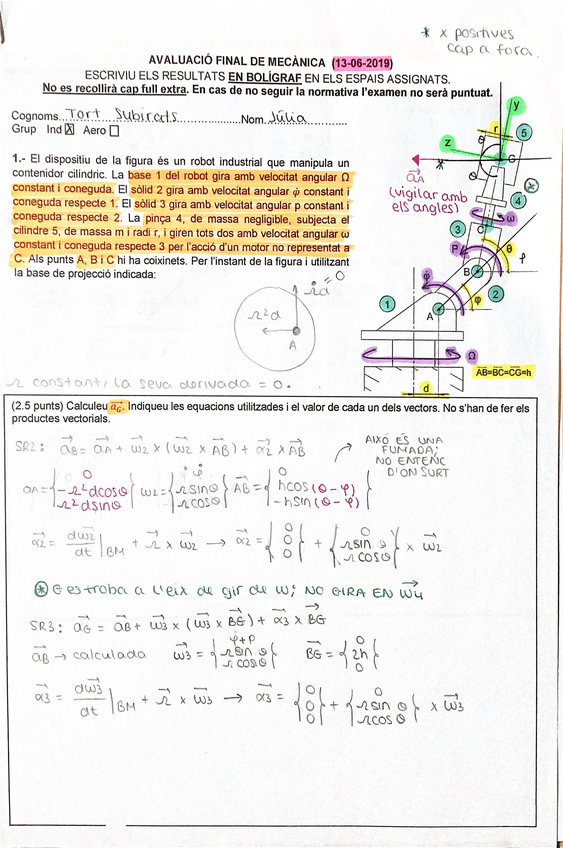 * x positives
cap a fora.
AVALUACIÓ FINAL DE MECÀNICA (13-06-2019)
ESCRIVIU ELS RESULTATS EN BOLÍGRAF EN ELS ESPAIS ASSIGNATS.
No es recollirà cap full extra. En cas de no seguir la normativa l'examen no serà puntuat.
Cognoms Tort Subirats Nom Júlia
Grup Ind X Aero
1.- El dispositiu de la figura és un robot industrial que manipula un
contenidor cilíndric. La base 1 del robot gira amb velocitat angular Ω
constant i coneguda. El sòlid 2 gira amb velocitat angular φ̇ constant i
coneguda respecte 1. El sòlid 3 gira amb velocitat angular p constant i
coneguda respecte 2. La pinça 4, de massa negligible, subjecta el
cilindre 5, de massa m i radi r, i giren tots dos amb velocitat angular ω
constant i coneguda respecte 3 per l'acció d'un motor no representat a
C. Als punts A, B i C hi ha coixinets. Per l'instant de la figura i utilitzant
la base de projecció indicada:
y
r
5
z
θ
G
aA
(vigilar amb
els angles)
4
ω
3
C
P
θ
φ
B
2
1
φ
A
Ω
AB=BC=CG=h
d
Ω̇d = 0
Ω²d
A
Ω constant, la seva derivada = 0.
(2.5 punts) Calculeu aG. Indiqueu les equacions utilitzades i el valor de cada un dels vectors. No s'han de fer els
productes vectorials.
SR2: aB = aA + ω2 x (ω2 x AB) + α2 x AB
AIXÒ ÉS UNA
FUMADA;
NO ENTENC
D'ON SURT
aA = { 0 -Ω²dcosθ Ω²dsinθ } ω2 = { φ̇ Ωsinθ Ωcosθ } AB = { 0 hcos(θ-φ) -hsin(θ-φ) }
α2 = dω2/dt |BM + Ω x ω2 → α2 = { 0 0 0 } + { 0 Ωsinθ Ωcosθ } x ω2
⊛ G es troba a l'eix de gir de ω; NO GIRA EN ω4
SR3: aG = aB + ω3 x (ω3 x BG) + α3 x BG
aB → calculada ω3 = { φ̇+p Ωsinθ Ωcosθ } BG = { 0 2h 0 }
α3 = dω3/dt |BM + Ω x ω3 → α3 = { 0 0 0 } + { 0 Ωsinθ Ωcosθ } x ω3